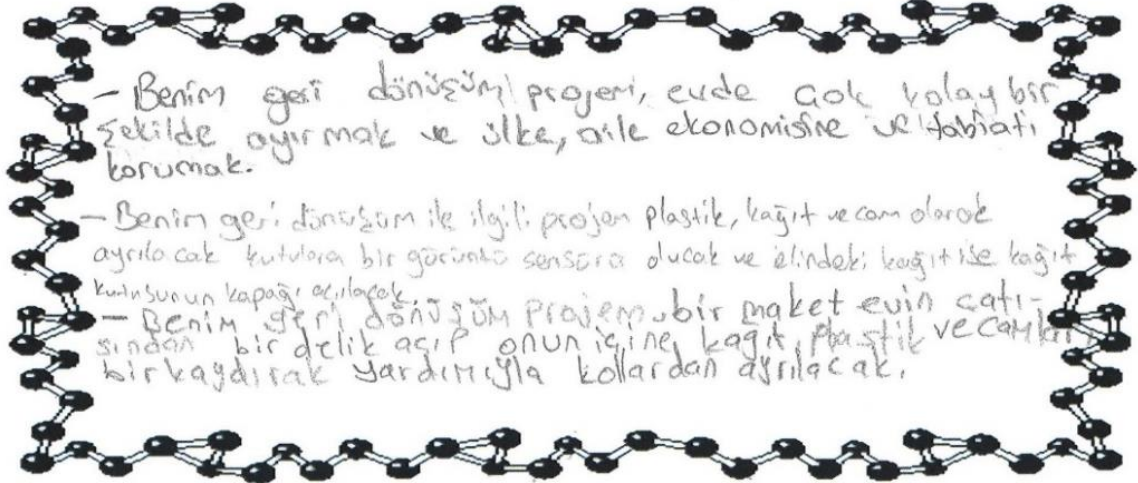 - Benim geri dönüşüm projem, evde çok kolay bir
şekilde ayırmak ve ülke, aile ekonomisine ve tabiatı
korumak.
- Benim geri dönüşüm ile ilgili projem plastik, kağıt ve cam olarak
ayrılacak kutulara bir görüntü sensörü olucak ve elindeki kağıt ise kağıt
kutusunun kapağı açılacak.
- Benim geri dönüşüm projem bir maket evin çatı-
sından bir delik açıp onun içine, kağıt, plastik ve camları
bir kaydırak yardımıyla kollardan ayrılacak.